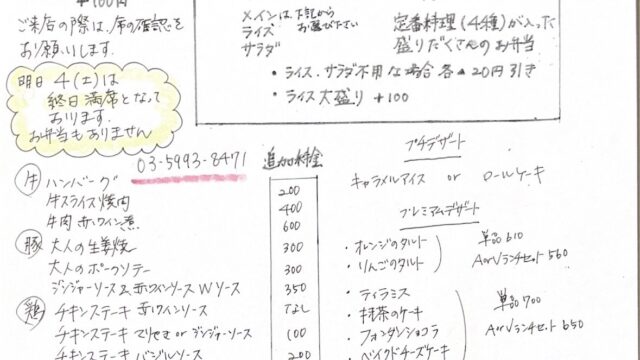 +100円
ご来店の際は、席の確認を
お願いします。
明日 4(土)は
終日満席となって
おります。
お弁当もありません
メインは下記から
お選び下さい
ライス
サラダ
定番料理(4種)が入った
盛りだくさんのお弁当
・ライス、サラダ不用な場合 各▲20円引き
・ライス大盛り +100
03-5993-8471
追加料金
牛 ハンバーグ 200
牛スライス焼肉 400
牛肉赤ワイン煮 600
豚 大人の生姜焼 300
大人のポークソテー 300
ジンジャーソース&赤ワインソースWソース 350
鶏 チキンステーキ赤ワインソース なし
チキンステーキ or ジンジャーソース 100
チキンステーキ バジルソース 200
プチデザート
キャラメルアイス or ロールケーキ
プレミアムデザート
・オレンジのタルト
・りんごのタルト
単品610
A or Vランチセット 560
・ティラミス
・抹茶のケーキ
・フォンダンショコラ
・ベイクドチーズケーキ
単品700
A or Vランチセット 650